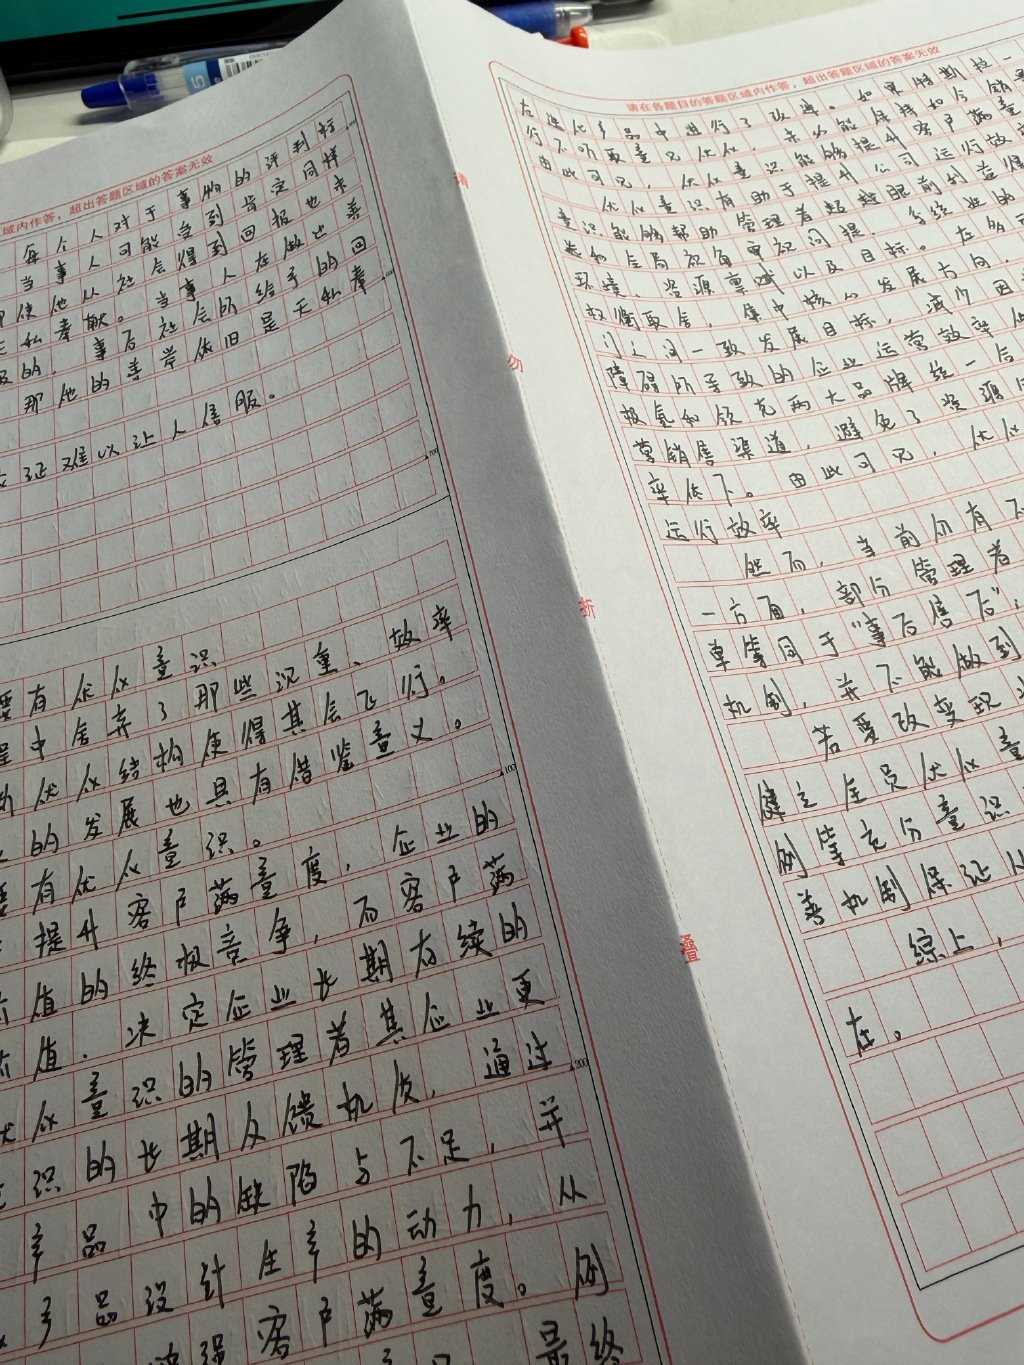 域内作答，超出答题区域的答案无效
每个人对于事物的评判标
当事人可能当到肯定同样
即使他从社会得到回报也未
无私奉献。当事人在做此善
的，事后社会所给予的回
那他的善举依旧是无私奉
证难以让人信服。
600
700
要有优化意识
程中舍弃了那些沉重、效率
优化结构使得其会飞行。
的发展也具有借鉴意义。
100
有优化意识。
提升客户满意度，企业的
价值的终极竞争，而客户满
价值，决定企业长期存续的
优化意识的管理者其企业更
识的长期反馈机质，通过
200
产品中的缺陷与不足，并
产品设计生产的动力，从
增强客户满意度。例
最终
请
勿
折
叠
请在各题目的答题区域内作答，超出答题区域的答案无效
在迭代产品中进行了改进。如果特斯拉一
行不听取意见优化，未必能保持如今销
由此可见，优化意识能够提升客户满意
优化意识有助于提升公司运行效
意识能够帮助管理者超越眼前利益得
态和全局视角审视问提，系统业的
环境、资源禀赋以及目标。在多
权衡取舍，集中核心发展方向，
门之间一致发展目标，减少因
障碍所导致的企业运营效率低
极氪和领克两大品牌统一合
营销售渠道，避免了资源
率低下。由此可见，优化
运行效率
然而，当前仍有不
一方面，部分管理者
单等同于“事后售后”，
机制，并不能做到
若要改变现
健立全员优化意
例等充分意识
善机制保证从
综上，
在。